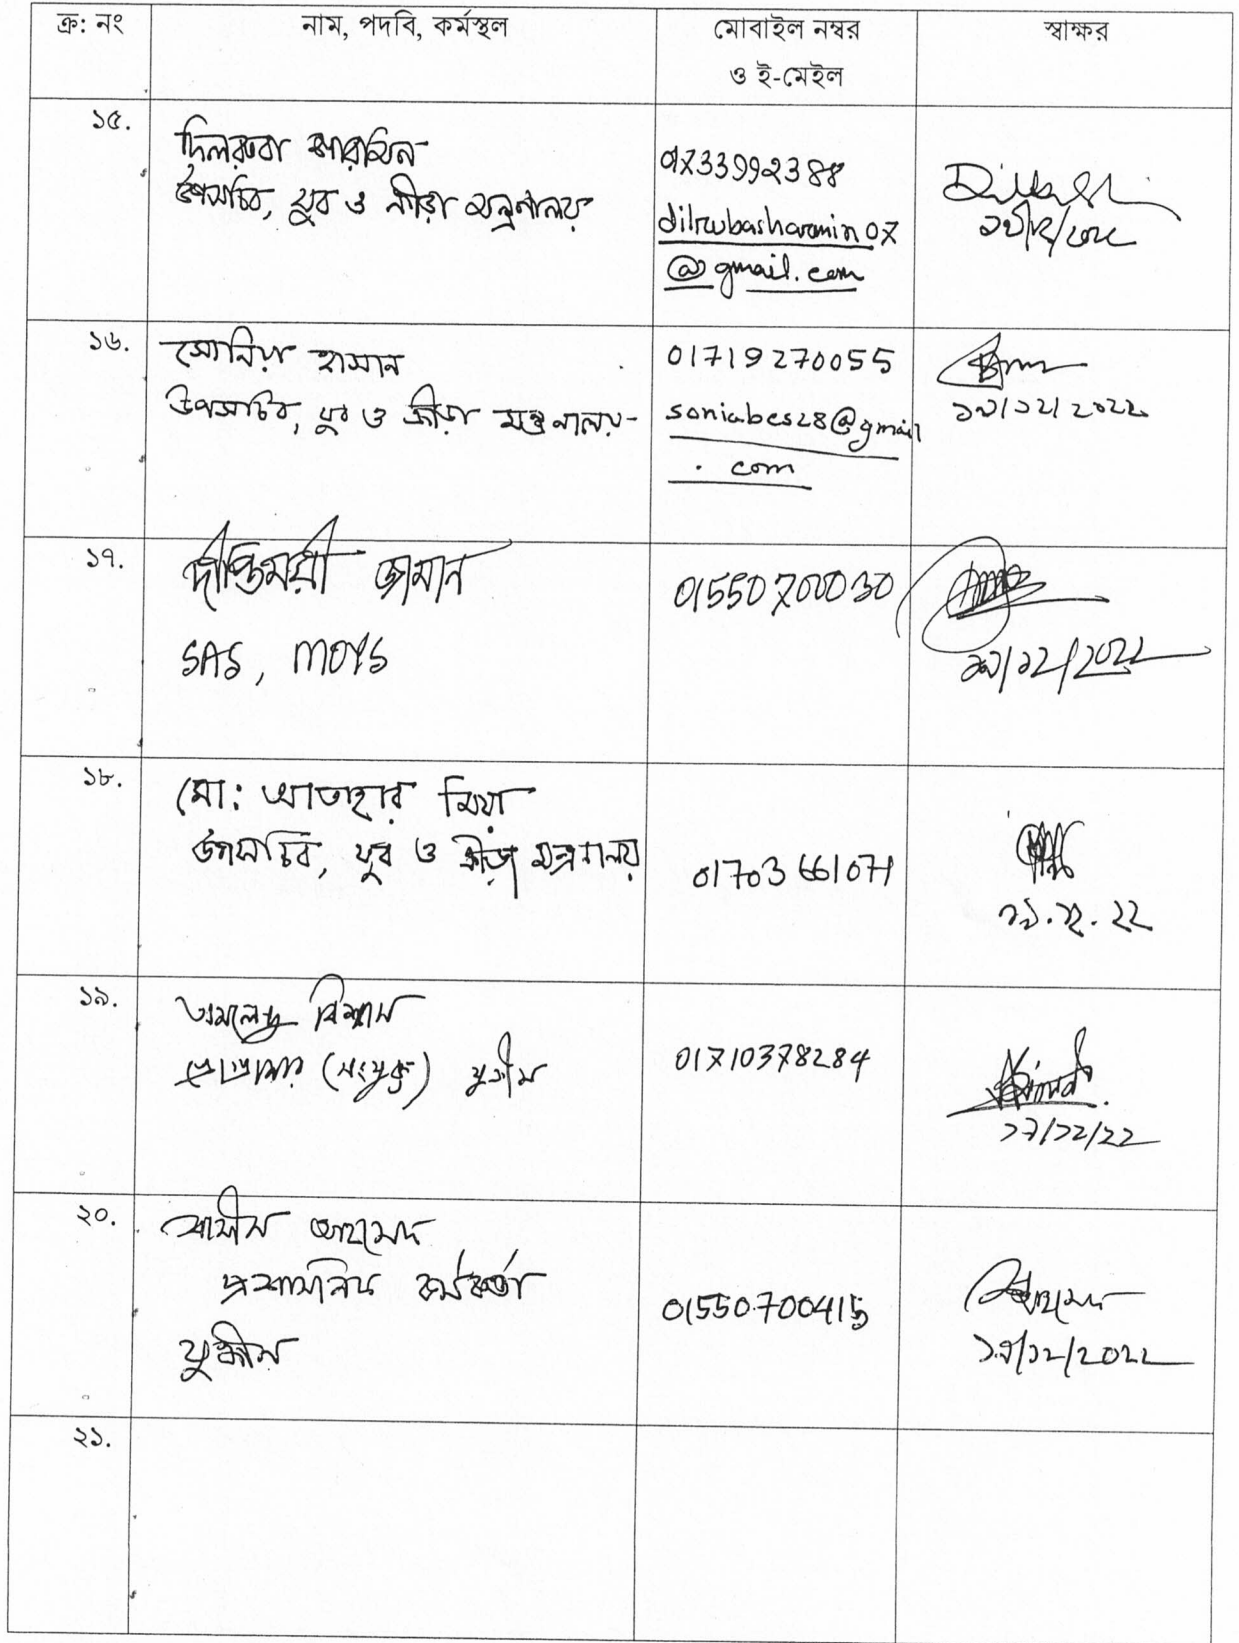 ক্র: নং নাম, পদবি, কর্মস্থল মোবাইল নম্বর স্বাক্ষর
ও ই-মেইল
১৫.
দিলরুবা শারমিন
উপসচিব, যুব ও ক্রীড়া মন্ত্রণালয়
01733992388
dilrubasharmin07
@gmail.com
১৬.
সোনিয়া হাসান
উপসচিব, যুব ও ক্রীড়া মন্ত্রণালয়
01719270055
soniabcs28@gmail
.com
১৯/১২/২০২২
১৭.
দীপ্তিময়ী জামান
SAS, MOYS
01550700030
১৯/১২/২০২২
১৮.
মো: আতাহার মিয়া
উপসচিব, যুব ও ক্রীড়া মন্ত্রণালয়
01703661071
১৯.১২.২২
১৯.
অমলেন্দু বিশ্বাস
(সংযুক্ত)
01710378284
২০.
আহমেদ
প্রশাসনিক কর্মকর্তা
01550700415
১৯/১২/২০২২
২১.